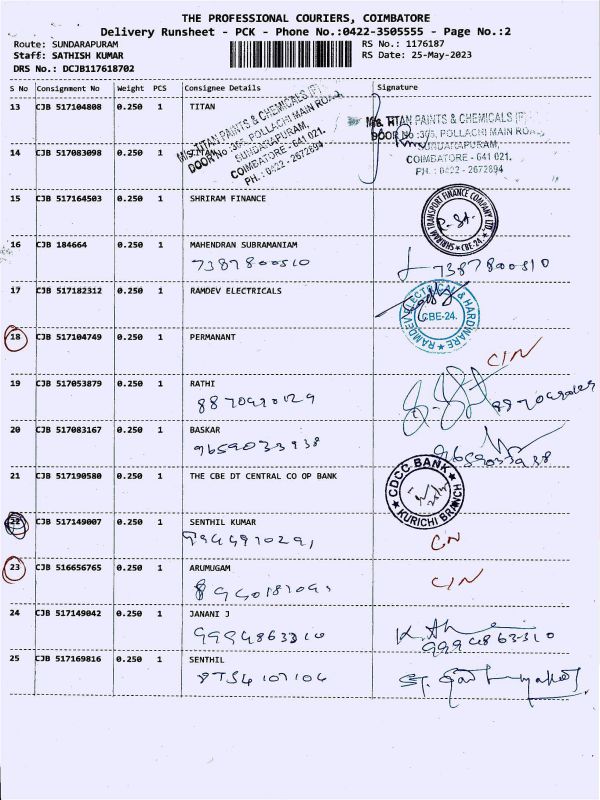 THE PROFESSIONAL COURIERS, COIMBATORE
Delivery Runsheet - PCK - Phone No.:0422-3505555 - Page No.:2
Route: SUNDARAPURAM RS No.: 1176187
Staff: SATHISH KUMAR RS Date: 25-May-2023
DRS No.: DCJB117618702
S No Consignment No Weight PCS Consignee Details Signature
13 CJB 517104808 0.250 1 TITAN
M/s. TITAN PAINTS & CHEMICALS (P)
DOOR No :305, POLLACHI MAIN ROAD,
SUNDARAPURAM,
COIMBATORE - 641 021.
PH. : 0422 - 2672894
M/s. TITAN PAINTS & CHEMICALS (P)
DOOR No :305, POLLACHI MAIN ROAD,
SUNDARAPURAM,
COIMBATORE - 641 021.
PH. : 0422 - 2672894
14 CJB 517083098 0.250 1
15 CJB 517164503 0.250 1 SHRIRAM FINANCE
SHRIRAM TRANSPORT FINANCE COMPANY LTD.
CBE-24.
16 CJB 184664 0.250 1 MAHENDRAN SUBRAMANIAM
7387800510 7387800510
17 CJB 517182312 0.250 1 RAMDEV ELECTRICALS
RAMDEV ELECTRICAL & HARDWARE
CBE-24.
18 CJB 517104749 0.250 1 PERMANANT C/N
19 CJB 517053879 0.250 1 RATHI
20 CJB 517083167 0.250 1 BASKAR
9659033938 9659033938
21 CJB 517190580 0.250 1 THE CBE DT CENTRAL CO OP BANK
CDCC BANK
KURICHI BRANCH
22 CJB 517149007 0.250 1 SENTHIL KUMAR
C/N
23 CJB 516656765 0.250 1 ARUMUGAM C/N
24 CJB 517149042 0.250 1 JANANI J
9994863310 9994863310
25 CJB 517169816 0.250 1 SENTHIL